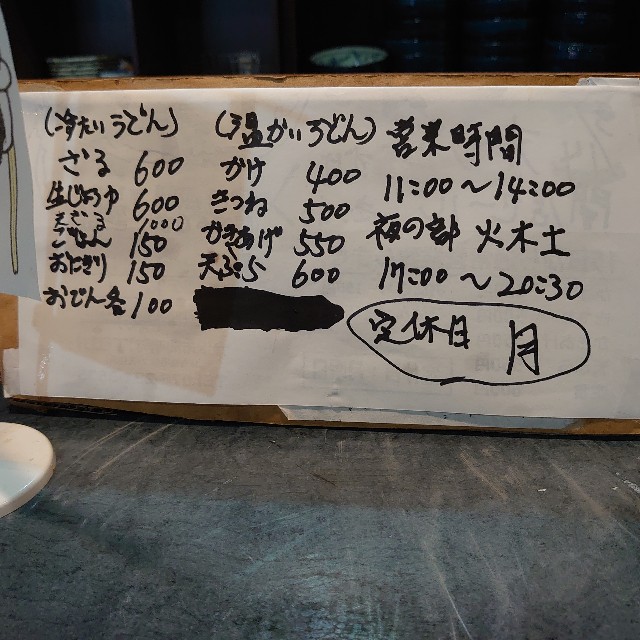 (冷たいうどん)
ざる 600
生じょうゆ 600
600
ごはん 150
おにぎり 150
おでん各 100
(温かいうどん)
かけ 400
きつね 500
かきあげ 550
天ぷら 600
営業時間
11:00〜14:00
夜の部 火木土
17:00〜20:30
定休日 月